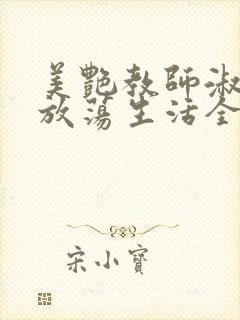 美艷教師淑
放蕩生活全
宋小寶